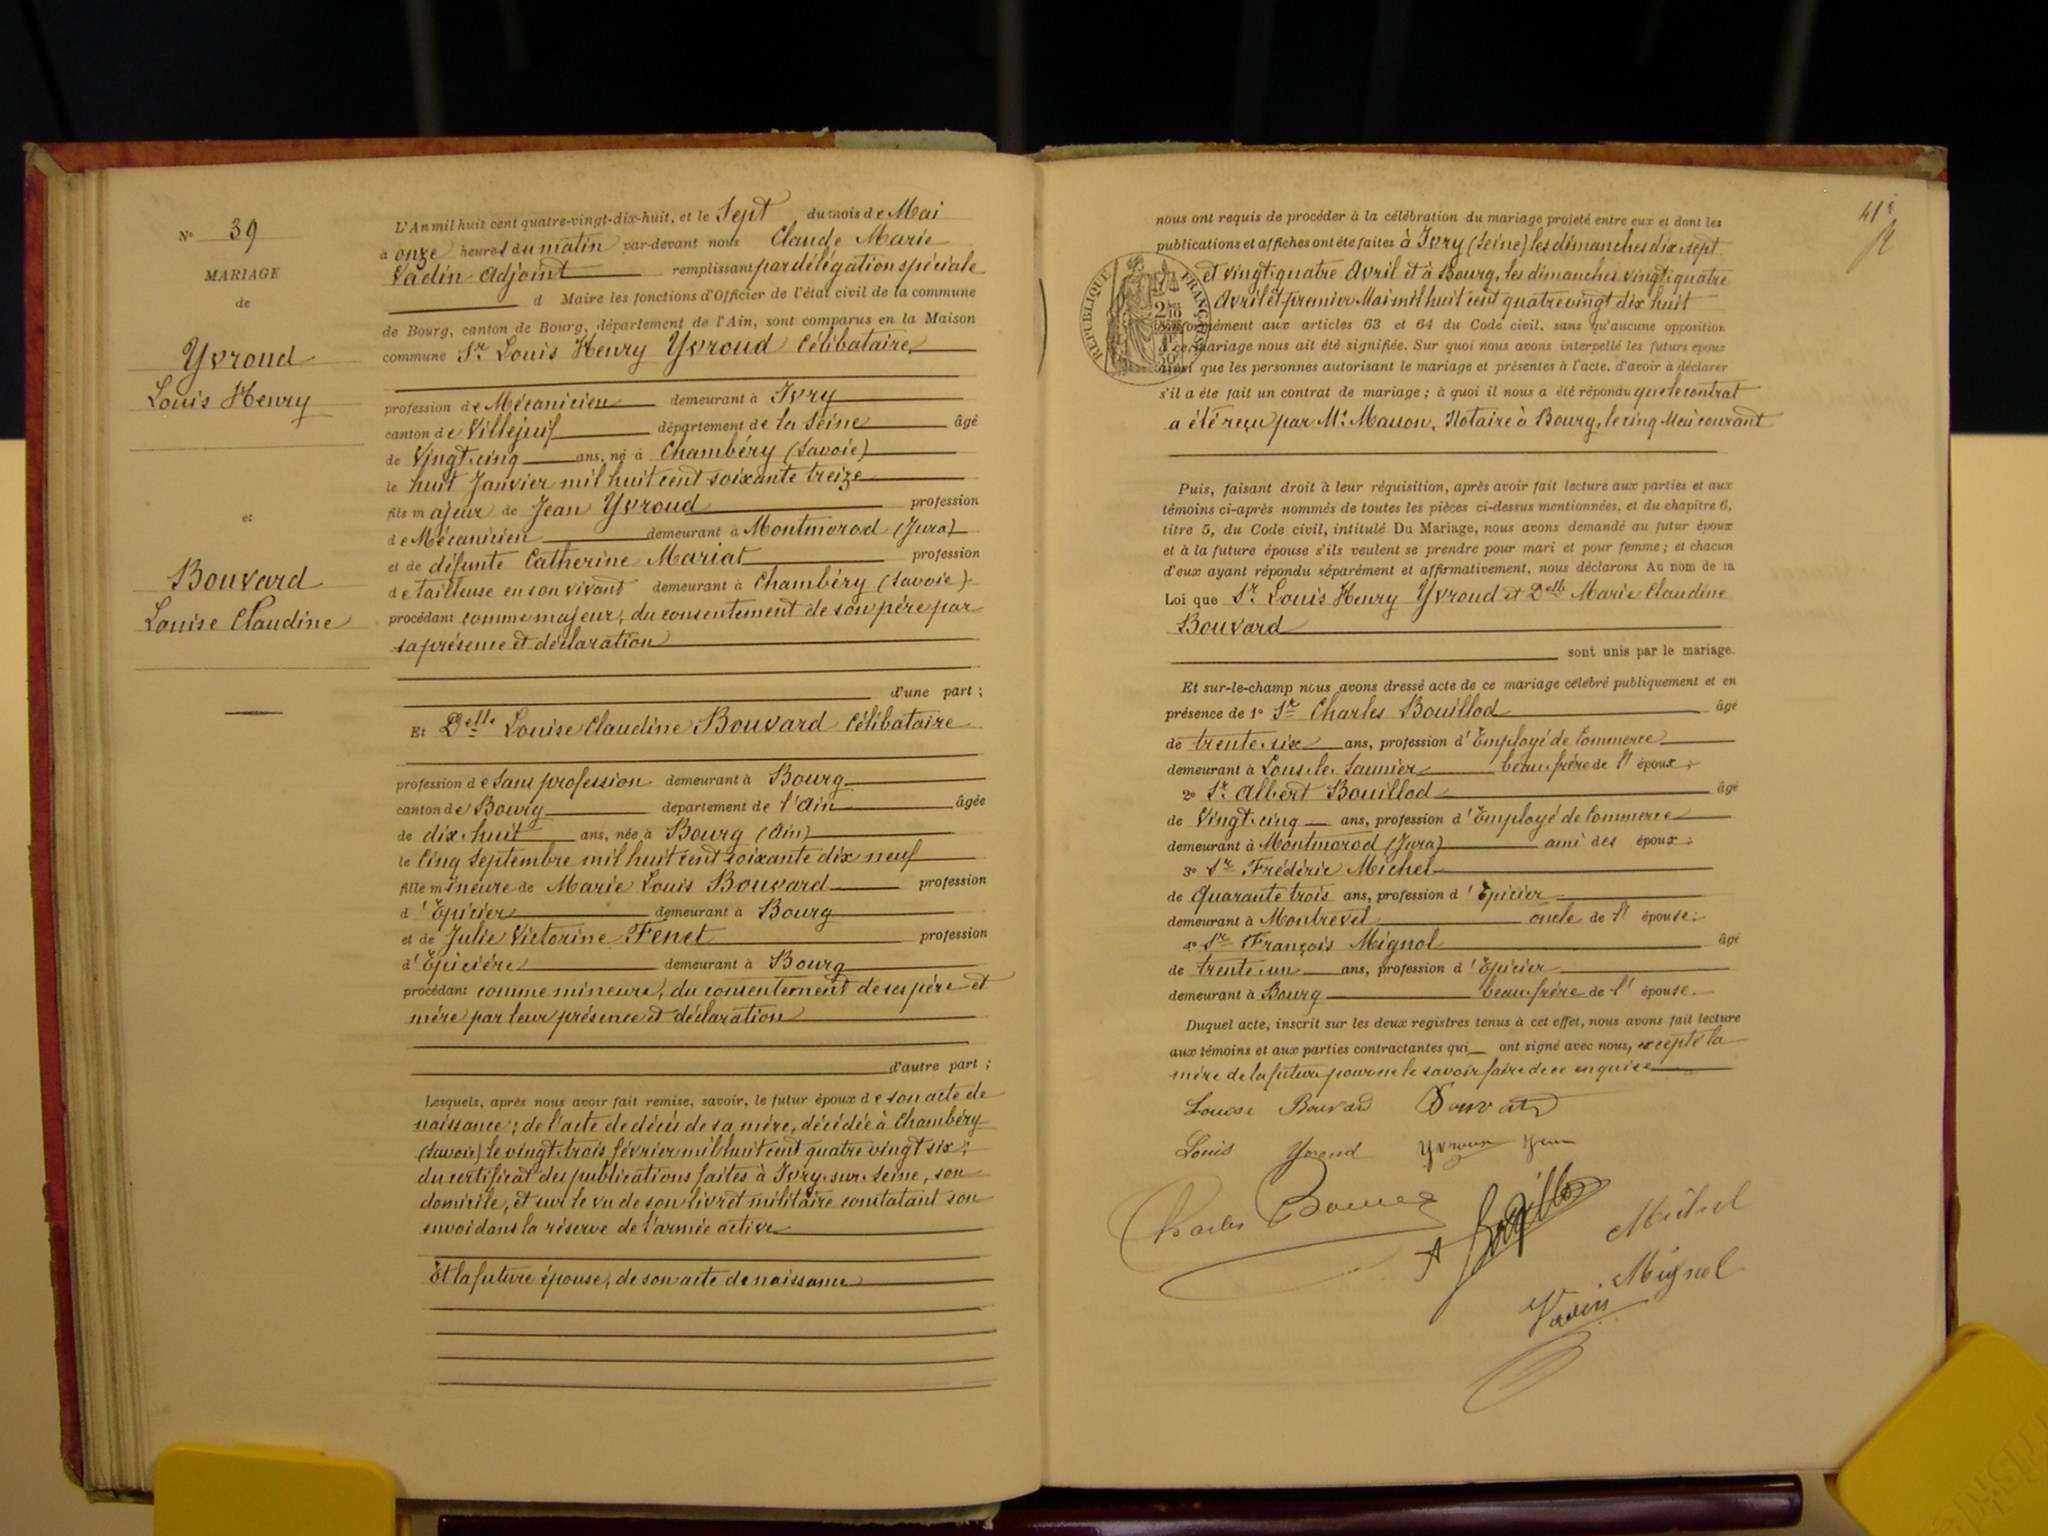 N° 39
MARIAGE
de
Yvroud
Louis Henry
et
Bouvard
Louise Claudine
L'An mil huit cent quatre-vingt-dix-huit, et le Sept du mois de Mai
à onze heures du matin par-devant nous Claude Marie
Vadin Adjoint remplissant par délégation spéciale
d Maire les fonctions d'Officier de l'état civil de la commune
de Bourg, canton de Bourg, département de l'Ain, sont comparus en la Maison
commune Sr Louis Henry Yvroud Célibataire
profession de Mécanicien demeurant à Ivry
canton de Villejuif département de la Seine âgé
de Vingt-cinq ans, né à Chambéry (Savoie)
le huit Janvier mil huit cent soixante treize
fils majeur de Jean Yvroud profession
de Mécanicien demeurant à Montmorod (Jura)
et de défunte Catherine Mariat profession
de tailleuse en son vivant demeurant à Chambéry (Savoie)
procédant comme majeur, du consentement de son père par
sa présence et déclaration
d'une part ;
Et Delle Louise Claudine Bouvard Célibataire
profession de Sans profession demeurant à Bourg
canton de Bourg département de l'Ain âgée
de dix-huit ans, née à Bourg (Ain)
le Cinq Septembre mil huit cent soixante dix neuf
fille mineure de Marie Louis Bouvard profession
d'Epicier demeurant à Bourg
et de Julie Victorine Fenet profession
d'Epicière demeurant à Bourg
procédant comme mineure, du consentement de ses père et
mère par leur présence et déclaration
d'autre part ;
Lesquels, après nous avoir fait remise, savoir, le futur époux de son acte de
naissance ; de l'acte de décès de sa mère, décédée à Chambéry
(Savoie) le vingt-trois février mil huit cent quatre vingt six ;
du certificat des publications faites à Ivry-sur-Seine, son
domicile, et sur le vu de son livret militaire constatant son
envoi dans la réserve de l'armée active
Et la future épouse, de son acte de naissance
41e
nous ont requis de procéder à la célébration du mariage projeté entre eux et dont les
publications et affiches ont été faites à Ivry (Seine) les dimanches dix-sept
et vingt-quatre Avril et à Bourg, les dimanches vingt-quatre
Avril et premier Mai mil huit cent quatre vingt dix huit
RÉPUBLIQUE FRANÇAISE
conformément aux articles 63 et 64 du Code civil, sans qu'aucune opposition
à ce mariage nous ait été signifiée. Sur quoi nous avons interpellé les futurs époux
ainsi que les personnes autorisant le mariage et présentes à l'acte, d'avoir à déclarer
s'il a été fait un contrat de mariage ; à quoi il nous a été répondu que le contrat
a été reçu par Me Masson, Notaire à Bourg, le cinq Mai courant
Puis, faisant droit à leur réquisition, après avoir fait lecture aux parties et aux
témoins ci-après nommés de toutes les pièces ci-dessus mentionnées, et du chapitre 6,
titre 5, du Code civil, intitulé Du Mariage, nous avons demandé au futur époux
et à la future épouse s'ils veulent se prendre pour mari et pour femme ; et chacun
d'eux ayant répondu séparément et affirmativement, nous déclarons Au nom de la
Loi que Sr Louis Henry Yvroud et Delle Marie Claudine
Bouvard
sont unis par le mariage.
Et sur-le-champ nous avons dressé acte de ce mariage célébré publiquement et en
présence de 1° Sr Charles Bouillod âgé
de trente-six ans, profession d'Employé de Commerce
demeurant à Lons-le-Saunier beau-frère de l'époux ;
2° Sr Albert Bouillod âgé
de Vingt-cinq ans, profession d'Employé de Commerce
demeurant à Montmorod (Jura) ami des époux ;
3° Sr Frédéric Michel
de Quarante trois ans, profession d'Epicier
demeurant à Montrevel oncle de l'épouse ;
4° Sr François Mignol âgé
de trente-un ans, profession d'Epicier
demeurant à Bourg beau-frère de l'épouse.
Duquel acte, inscrit sur les deux registres tenus à cet effet, nous avons fait lecture
aux témoins et aux parties contractantes qui ont signé avec nous, excepté la
mère de la future pour ne le savoir faire de ce enquise
Louise Bouvard Bouvard
Louis Yvroud Yvroud Jean
Charles Bouillod A Bouillod Michel
Mignol
Vadin